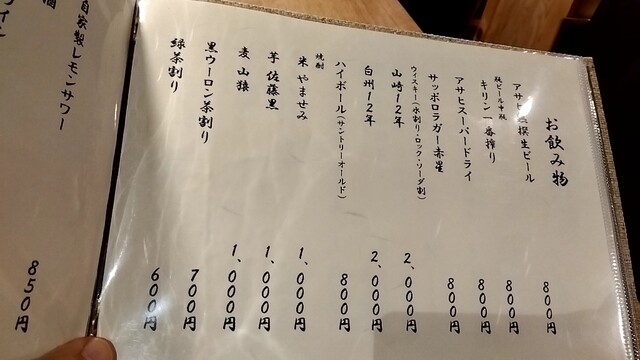 お飲み物
アサヒ 撰生ビール 800円
瓶ビール中瓶
キリン一番搾り 800円
アサヒスーパードライ 800円
サッポロラガー赤星 800円
ウィスキー(水割り・ロック・ソーダ割)
山崎12年 2、000円
白州12年 2、000円
ハイボール(サントリーオールド) 800円
焼酎
米 やませみ 1、000円
芋 佐藤黒 1、000円
麦 山猿 1、000円
黒ウーロン茶割り 700円
緑茶割り 600円
自家製レモンサワー 850円
酒